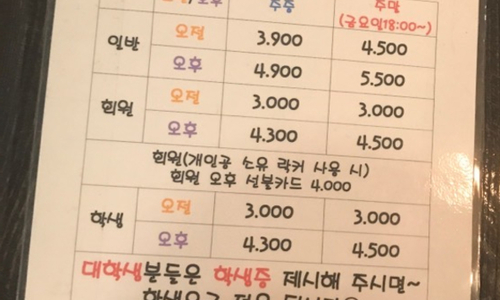 주중 주말
(금요일18:00~)
일반 오전 3.900 4.500
오후 4.900 5.500
회원 오전 3.000 3.000
오후 4.300 4.500
회원(개인공 소유 락커 사용 시)
회원 오후 선불카드 4.000
학생 오전 3.000 3.000
오후 4.300 4.500
대학생분들은 학생증 제시해 주시면~